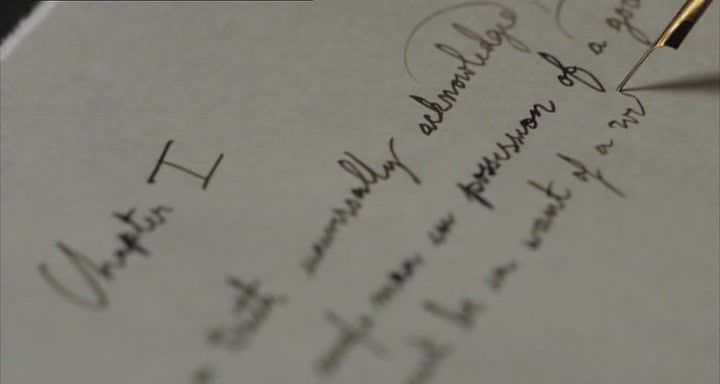 Chapter I
a truth universally acknowledged
single man in possession of a goo
must be in want of a w